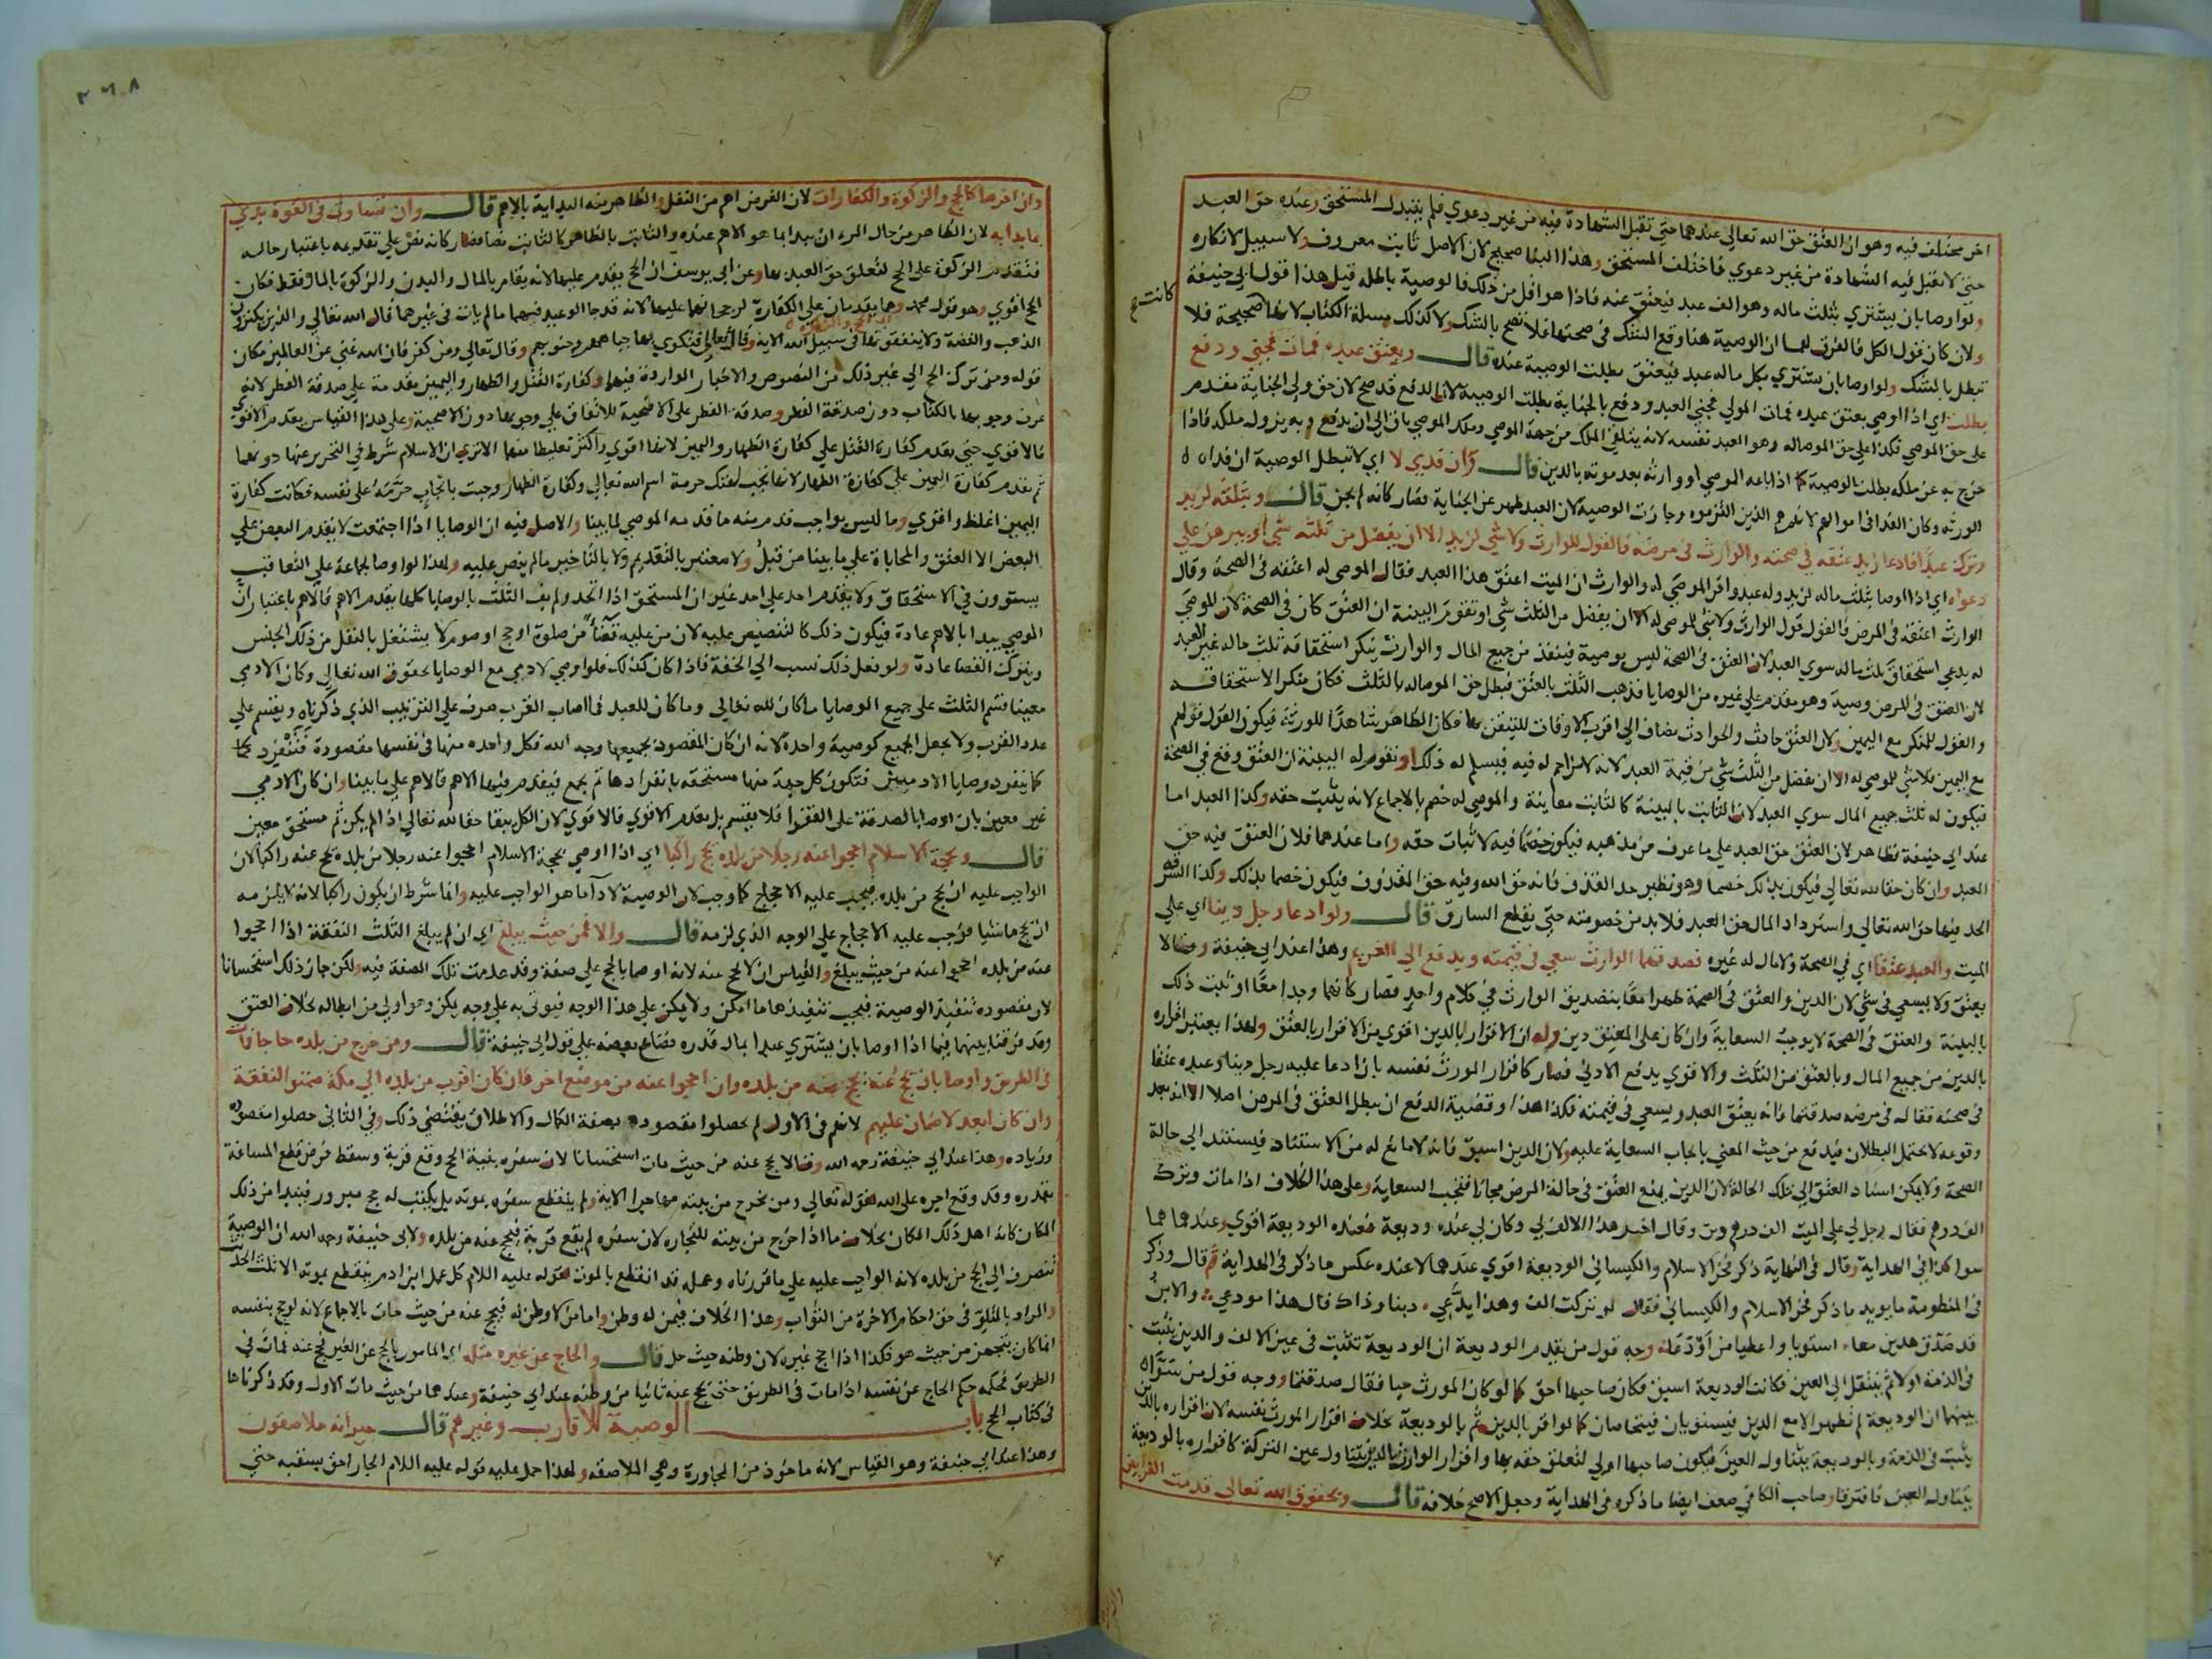 اخر مختلف فيه وهو ان العتق حق الله تعالى عندهما حتى تقبل الشهادة فيه من غير دعوي فلم يتبدل المستحق وعنده حق العبد
حتى لا تقبل فيه الشهادة من غير دعوي فاختلف المستحق وهذا البنا صحيح لان الاصل ثابت معروف ولا سبيل لانكاره
ولو اوصا بان يشتري بثلث ماله وهو الف عبد فيعتق عنه فاذا هو اقل من ذلك فالوصية باطلة قيل هذا قول ابي حنيفة
كانت ع
ولان كان قول الكل فالفرق لهما ان الوصية هنا وقع الشك في صحتها فلا تصح بالشك ولا كذلك مسلة الكتاب لانها صحيحة فلا
تبطل بالشك ولو اوصا بان يشتري بكل ماله عبد فيعتق بطلت الوصية عنده قال وبعتق عبده فمات فجني ودفع
بطلت اي اذا اوصي بعتق عبده فمات المولي فجني العبد ودفع بالجناية بطلت الوصية لان الدفع قد صح لان حق ولي الجناية مقدم
على حق الموصي فكذا على حق الموصاله وهو العبد نفسه لانه يتلقي الملك من جهة الموصي وملك الموصي باق الي ان يدفع وبه يزول ملكه فاذا
خرج به عن ملكه بطلت الوصية كما اذا باعه الموصي او وارثه بعد موته بالدين قال وان فدي لا اي لا تبطل الوصية ان فداه
الورثه وكان الفدا في اموالهم لانهم هم الذين التزموه وجازت الوصية لان العبد طهر عن الجناية فصار كانه لم يجن قال وبثلثه لزيد
وترك عبدا فادعا زيد عتقه في صحته والوارث في مرضه فالقول للوارث ولا شي لزيد الا ان يفضل من ثلثه شي او يبرهن على
دعواه اي اذا اوصا بثلث ماله لزيد وله عبد واقر الموصي له والوارث ان الميت اعتق هذا العبد فقال الموصي له اعتقه في الصحة وقال
الوارث اعتقه في المرض فالقول قول الوارث ولا شي للموصي له الا ان يفضل من الثلث شي او تقوم البينة ان العتق كان في الصحة لان الموصي
له يدعي استحقاق ثلث ماله سوي العبد لان العتق في الصحة ليس بوصية فينفذ من جميع المال والوارث ينكر استحقاقه ثلث ماله غير العبد
لان العتق في المرض وصية وهو مقدم على غيره من الوصايا فذهب الثلث بالعتق فبطل حق الموصاله بالثلث فكان منكر الاستحقاقه
والقول للمنكر مع اليمين ولان العتق حادث والحوادث تضاف الي اقرب الاوقات للتيقن بها فكان الظاهر شاهدا للورثة فيكون القول قولهم
مع اليمين فلا شي للموصي له الا ان يفضل من الثلث شي من قيمة العبد لانه لا مزاحم له فيه فيسلم له ذلك او تقوم له البينة ان العتق وقع في الصحة
فيكون له ثلث جميع المال سوي العبد لان الثابت بالبينة كالثابت معاينة والموصي له خصم بالاجماع لانه يثبت حقه وكذا العبد اما
عند ابي حنيفة فظاهر لان العتق حق العبد على ما عرف من مذهبه فيكون خصما فيه لاثبات حقه واما عندهما فلان العتق فيه حق
العبد وان كان حقا لله تعالى فيكون بذلك خصما وهو نظير حد القذف فانه حق الله وفيه حق المقذوف فيكون خصما بذلك وكذا السرقه
الحد فيها حق الله تعالى واسترداد المال حق العبد فلا بد من خصومته حتى يقطع السارق قال ولو ادعا رجل دينا اي على
الميت والعبد عتقا اي في الصحة ولا مال له غيره فصدقهما الوارث سعي في قيمته ويدفع الي الغريم وهذا عند ابي حنيفة وقالا
يعتق ولا يسعي في شي لان الدين والعتق في الصحة ظهرا معا بتصديق الوارث في كلام واحد فصار كانهما وجدا معا او ثبت ذلك
بالبينة والعتق في الصحة لا يوجب السعاية وان كان على المعتق دين وله ان الاقرار بالدين اقوي من الاقرار بالعتق ولهذا يعتبر اقراره
بالدين من جميع المال وبالعتق من الثلث والاقوي يدفع الادني فصار كاقرار المورث نفسه بان ادعا عليه رجل دينا وعبده عتقا
في صحته فقال في مرضه صدقتما فانه يعتق العبد ويسعي في قيمته فكذا هذا وقضية الدفع ان يبطل العتق في المرض اصلا الا انه بعد
وقوعه لا يحتمل البطلان فيدفع من حيث المعني بايجاب السعاية عليه ولان الدين اسبق فانه لا مانع له من الاستناد فيستند الي حالة
الصحة ولا يمكن اسناد العتق الي تلك الحالة لان الدين يمنع العتق في حالة المرض مجانا فتجب السعاية وعلى هذا الخلاف اذا مات وترك
الف درهم فقال رجل لي على الميت الف درهم دين وقال اخر هذا الالف لي وكان لي عنده وديعة فعنده الوديعة اقوي وعندهما هما
سوا كذا في الهداية وقال في النهاية ذكر فخر الاسلام والكيساني الوديعة اقوي عندهما لا عنده عكس ما ذكر في الهداية ثم قال وذكر
في المنظومة ما يويد ما ذكر فخر الاسلام والكيساني فقال لو تركت الف وهذا يدعي دينا وذاك قال هذا مودعي والابن
قد صدق هذين معا استويا واعطيا من اودعا وجه قول من يقدم الوديعة ان الوديعة تثبت في عين الالف والدين يثبت
في الذمة اولا ثم ينتقل الي العين فكانت الوديعة اسبق فكان صاحبها احق كما لو كان المورث حيا فقال صدقتما ووجه قول من سواه
بينهما ان الوديعة لم تظهر الا مع الدين فيستويان فيتحاصان كما لو اقر بالدين ثم بالوديعة بخلاف اقرار المورث نفسه لان اقراره بالدين
يثبت في الذمة وبالوديعة يتناول العين فيكون صاحبها اولي لتعلق حقه بها واقرار الوارث بالدين يتناول عين التركة كاقراره بالوديعة
يتناول العين فافترقا وصاحب الكافي ضعف ايضا ما ذكره في الهداية وجعل الاصح خلافه قال وبحقوق الله تعالى قدمت الفرايض
٢٦٨
وان اخرها كالحج والزكوة والكفارات لان الفرض اهم من النفل والظاهر منه البداية بالاهم قال وان تساوت في القوة بدي
بما بدا به لان الظاهر من حال المرء ان يبدا بما هو الاهم عنده والثابت بالظاهر كالثابت نصا فصار كانه نص على تقديمه باعتبار حاله
فتقدم الزكوة على الحج لتعلق حق العبد بها وعن ابي يوسف ان الحج يقدم عليها لانه يقام بالمال والبدن والزكوة بالمال فقط فكان
الحج اقوي وهو قول محمد وهما يقدمان على الكفارة لرجحانهما عليها لانه قد جا الوعيد فيهما ما لم يات في غيرهما قال الله تعالى والذين يكنزون
الذهب والفضة ولا ينفقونها في سبيل الله الاية وقال تعالى فتكوي بها جباههم وجنوبهم وقال تعالى ومن كفر فان الله غني عن العالمين مكان
قوله ومن ترك الحج الي غير ذلك من النصوص والاخبار الواردة فيهما وكفارة القتل والظهار واليمين مقدمة على صدقة الفطر لانه
عرف وجوبها بالكتاب دون صدقة الفطر وصدقة الفطر على الاضحية للاتفاق على وجوبها دون الاضحية وعلى هذا القياس يقدم الاقوي
فالاقوي حتى يقدم كفارة القتل على كفارة الظهار واليمين لانها اقوي واكثر تغليظا منهما الا تري ان الاسلام شرط في التحرير عنها دونهما
ثم يقدم كفارة اليمين على كفارة الظهار لانها تجب لهتك حرمة اسم الله تعالى وكفارة الظهار وجبت بايجاب حرمة على نفسه فكانت كفارة
اليمين اغلظ واقوي وما ليس بواجب قدم منه ما قدمه الموصي لما بينا والاصل فيه ان الوصايا اذا اجتمعت لا يقدم البعض على
البعض الا العتق والمحاباة على ما بينا من قبل ولا معتبر بالتقديم ولا بالتاخير ما لم ينص عليه ولهذا لو اوصا لجماعة على التعاقب
يستوون في الاستحقاق ولا يقدم احد على احد غير ان المستحق اذا اتحد ولم يف الثلث بالوصايا كلها يقدم الاهم فالاهم باعتبار ان
الموصي يبدا بالاهم عادة فيكون ذلك كالتنصيص عليه لان من عليه قضا من صلوة او حج او صوم لا يشتغل بالنفل من ذلك الجنس
ويترك القضا عادة ولو فعل ذلك نسب الي الخفة فاذا كان كذلك فلو اوصي لادمي مع الوصايا بحقوق الله تعالى وكان الادمي
معينا قسم الثلث على جميع الوصايا ما كان لله تعالى وما كان للعبد فما اصاب القرب صرف على الترتيب الذي ذكرناه ويقسم على
عدد القرب ولا يجعل الجميع كوصية واحدة لانه ان كان المقصود بجميعها وجه الله فكل واحدة منها في نفسها مقصودة فتنفرد كما
كما ينفرد وصايا الادميين فتكون كل جهة منها مستحقة بانفرادها ثم يجمع فيقدم فيها الاهم فالاهم على ما بينا وان كان الادمي
غير معين بان اوصا بالصدقة على الفقرا فلا يقسم بل يقدم الاقوي فالاقوي لان الكل يبقا حقا لله تعالى اذا لم يكن ثم مستحق معين
قال وبحجة الاسلام احجوا عنه رجلا من بلده يحج راكبا اي اذا اوصي بحجة الاسلام احجوا عنه رجلا من بلده يحج عنه راكبا لان
الواجب عليه ان يحج من بلده فيجب عليه الاحجاج كما وجب لان الوصية لادآ ما هو الواجب عليه وانما شرط ان يكون راكبا لانه لا يلزمه
ان يحج ماشيا فوجب عليه الاحجاج على الوجه الذي لزمه قال والا فمن حيث يبلغ اي ان لم يبلغ الثلث النفقة اذا احجوا
عنه من بلده احجوا عنه من حيث يبلغ والقياس ان لا يحج عنه لانه اوصا بالحج على صفة وقد عدمت تلك الصفة فيه ولكن جاز ذلك استحسانا
لان مقصوده تنفيذ الوصية فيجب تنفيذها ما امكن ولا يمكن على هذا الوجه فيوتي به على وجه يمكن وهو اولي من ابطاله بخلاف العتق
وقد فرقنا بينهما فيما اذا اوصا بان يشتري عبدا بمال قدره فضاع بعضه على قول ابي حنيفة قال ومن خرج من بلده حاجا فمات
في الطريق واوصا بان يحج عنه يحج عنه من بلده وان احجوا عنه من موضع اخر فان كان اقرب من بلده الي مكة ضمنوا النفقة
وان كان ابعد لا ضمان عليهم لانهم في الاول لم يحصلوا مقصوده بصفة الكمال والاطلاق يقتضي ذلك وفي الثاني حصلوا مقصوده
وزياده وهذا عند ابي حنيفة رحمه الله وقالا يحج عنه من حيث مات استحسانا لان سفره بنية الحج وقع قربة وسقط فرض قطع المسافة
بقدره وقد وقع اجره على الله لقوله تعالى ومن يخرج من بيته مهاجرا الاية ولم ينقطع سفره بموته بل يكتب له حج مبرور فيبتدا من ذلك
المكان كانه اهل ذلك المكان بخلاف ما اذا خرج من بيته للتجاره لان سفره لم يقع قربة فيحج عنه من بلده ولابي حنيفة رحمه الله ان الوصية
تنصرف الي الحج من بلده لانه الواجب عليه على ما قررناه وعمله قد انقطع بالموت لقوله عليه اللام كل عمل ابن ادم ينقطع بموته الا ثلث الحديث
والمراد بالثلث في حق احكام الاخرة من الثواب وهذا الخلاف فيمن له وطن واما من لا وطن له فيحج عنه من حيث مات بالاجماع لانه لو حج بنفسه
انما كان يتجهز من حيث هو فكذا اذا احج غيره لان وطنه حيث حل قال والحاج عن غيره مثله اي المامور بالحج عن الغير فحج عنه فمات في
الطريق فحكمه حكم الحاج عن نفسه اذا مات في الطريق حتى يحج عنه ثانيا من وطنه عند ابي حنيفة وعندهما من حيث مات الاول وقد ذكرناها
في كتاب الحج باب الوصية للاقارب وغيرهم قال جيرانه ملاصقون
وهذا عند ابي حنيفة وهو القياس لانه ماخوذ من المجاورة وهي الملاصقه ولهذا حمل عليه قوله عليه اللام الجار احق بسقبه حتى